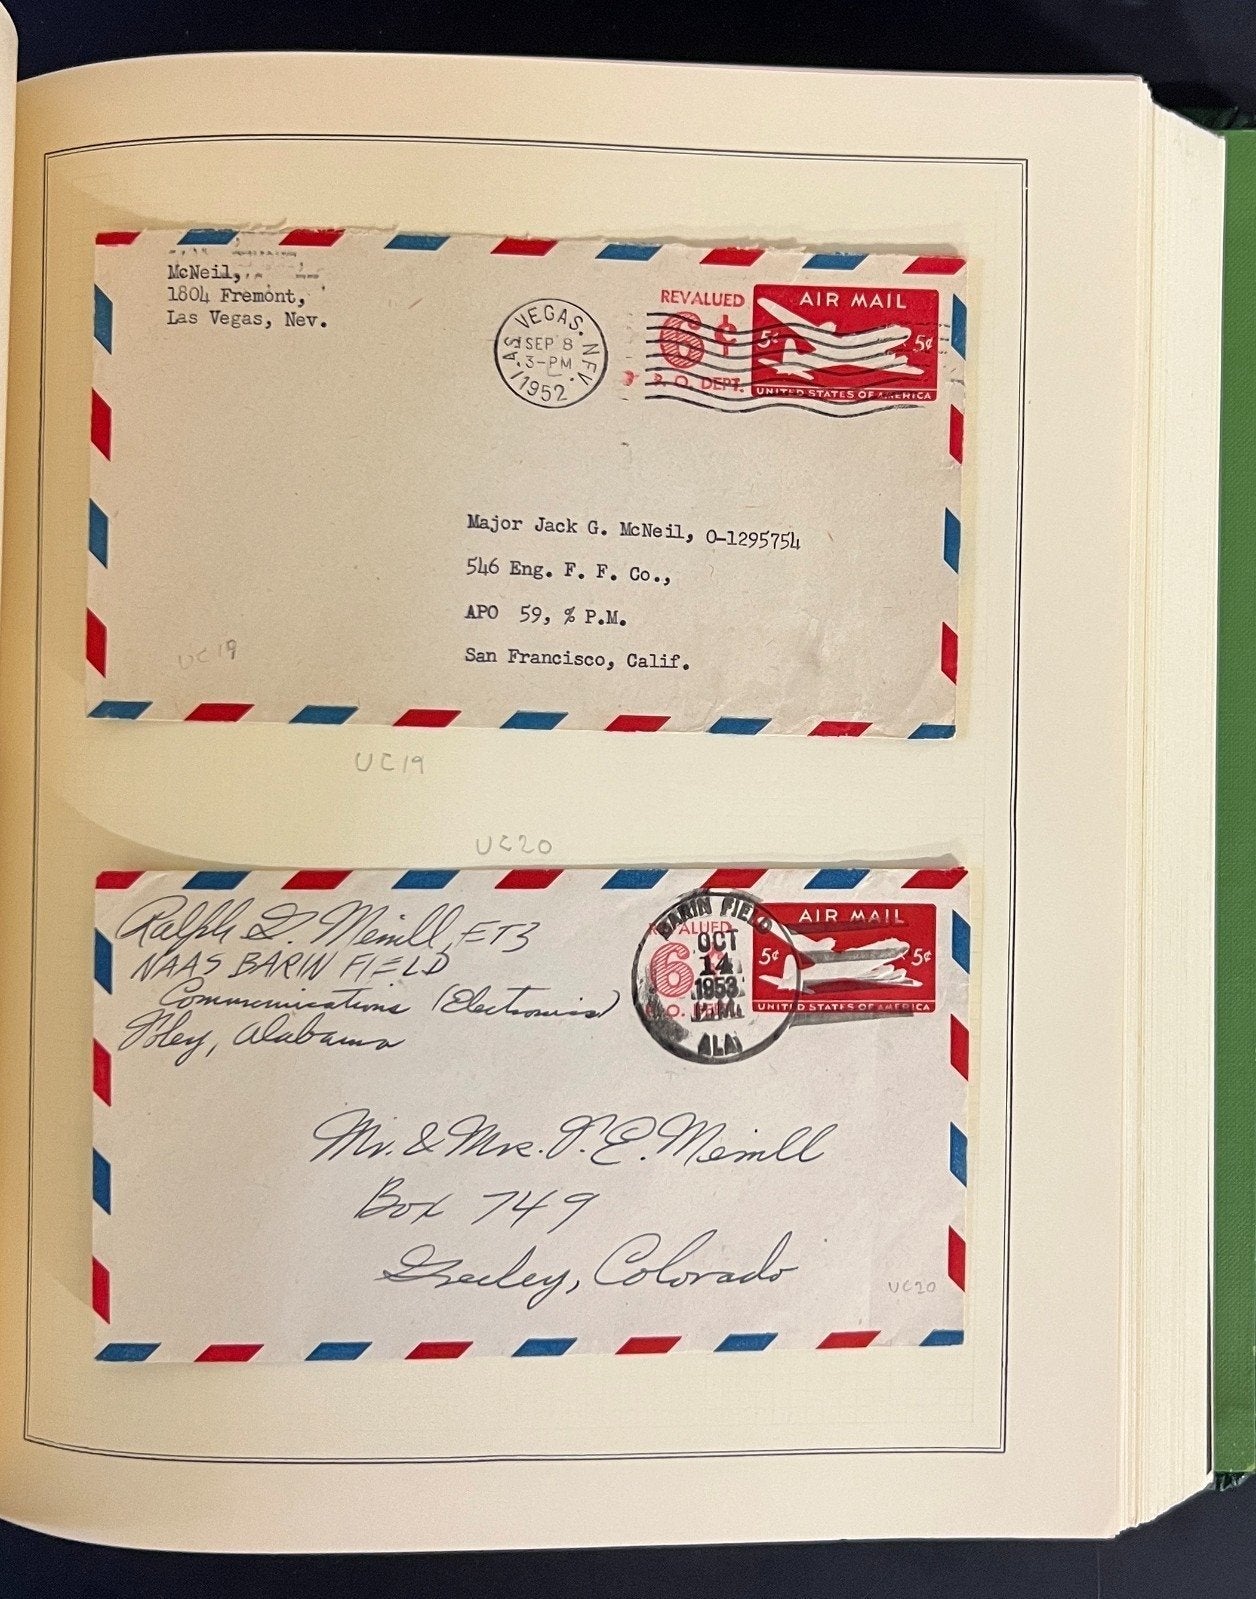 McNeil,
1804 Fremont,
Las Vegas, Nev.
LAS VEGAS. NEV.
SEP 8
3-PM
1952
REVALUED
6¢
P. O. DEPT.
AIR MAIL
5¢ 5¢
UNITED STATES OF AMERICA
Major Jack G. McNeil, O-1295754
546 Eng. F. F. Co.,
APO 59, % P.M.
San Francisco, Calif.
UC19
UC19
UC20
Ralph G. Merrill, ET3
NAAS BARIN FIELD
Communications (Electronics)
Foley, Alabama
BARIN FIELD
OCT
14
1953
ALA
REVALUED
6
P.O. DEPT.
AIR MAIL
5¢ 5¢
UNITED STATES OF AMERICA
Mr. & Mrs. P. E. Merrill
Box 749
Greeley, Colorado
UC20